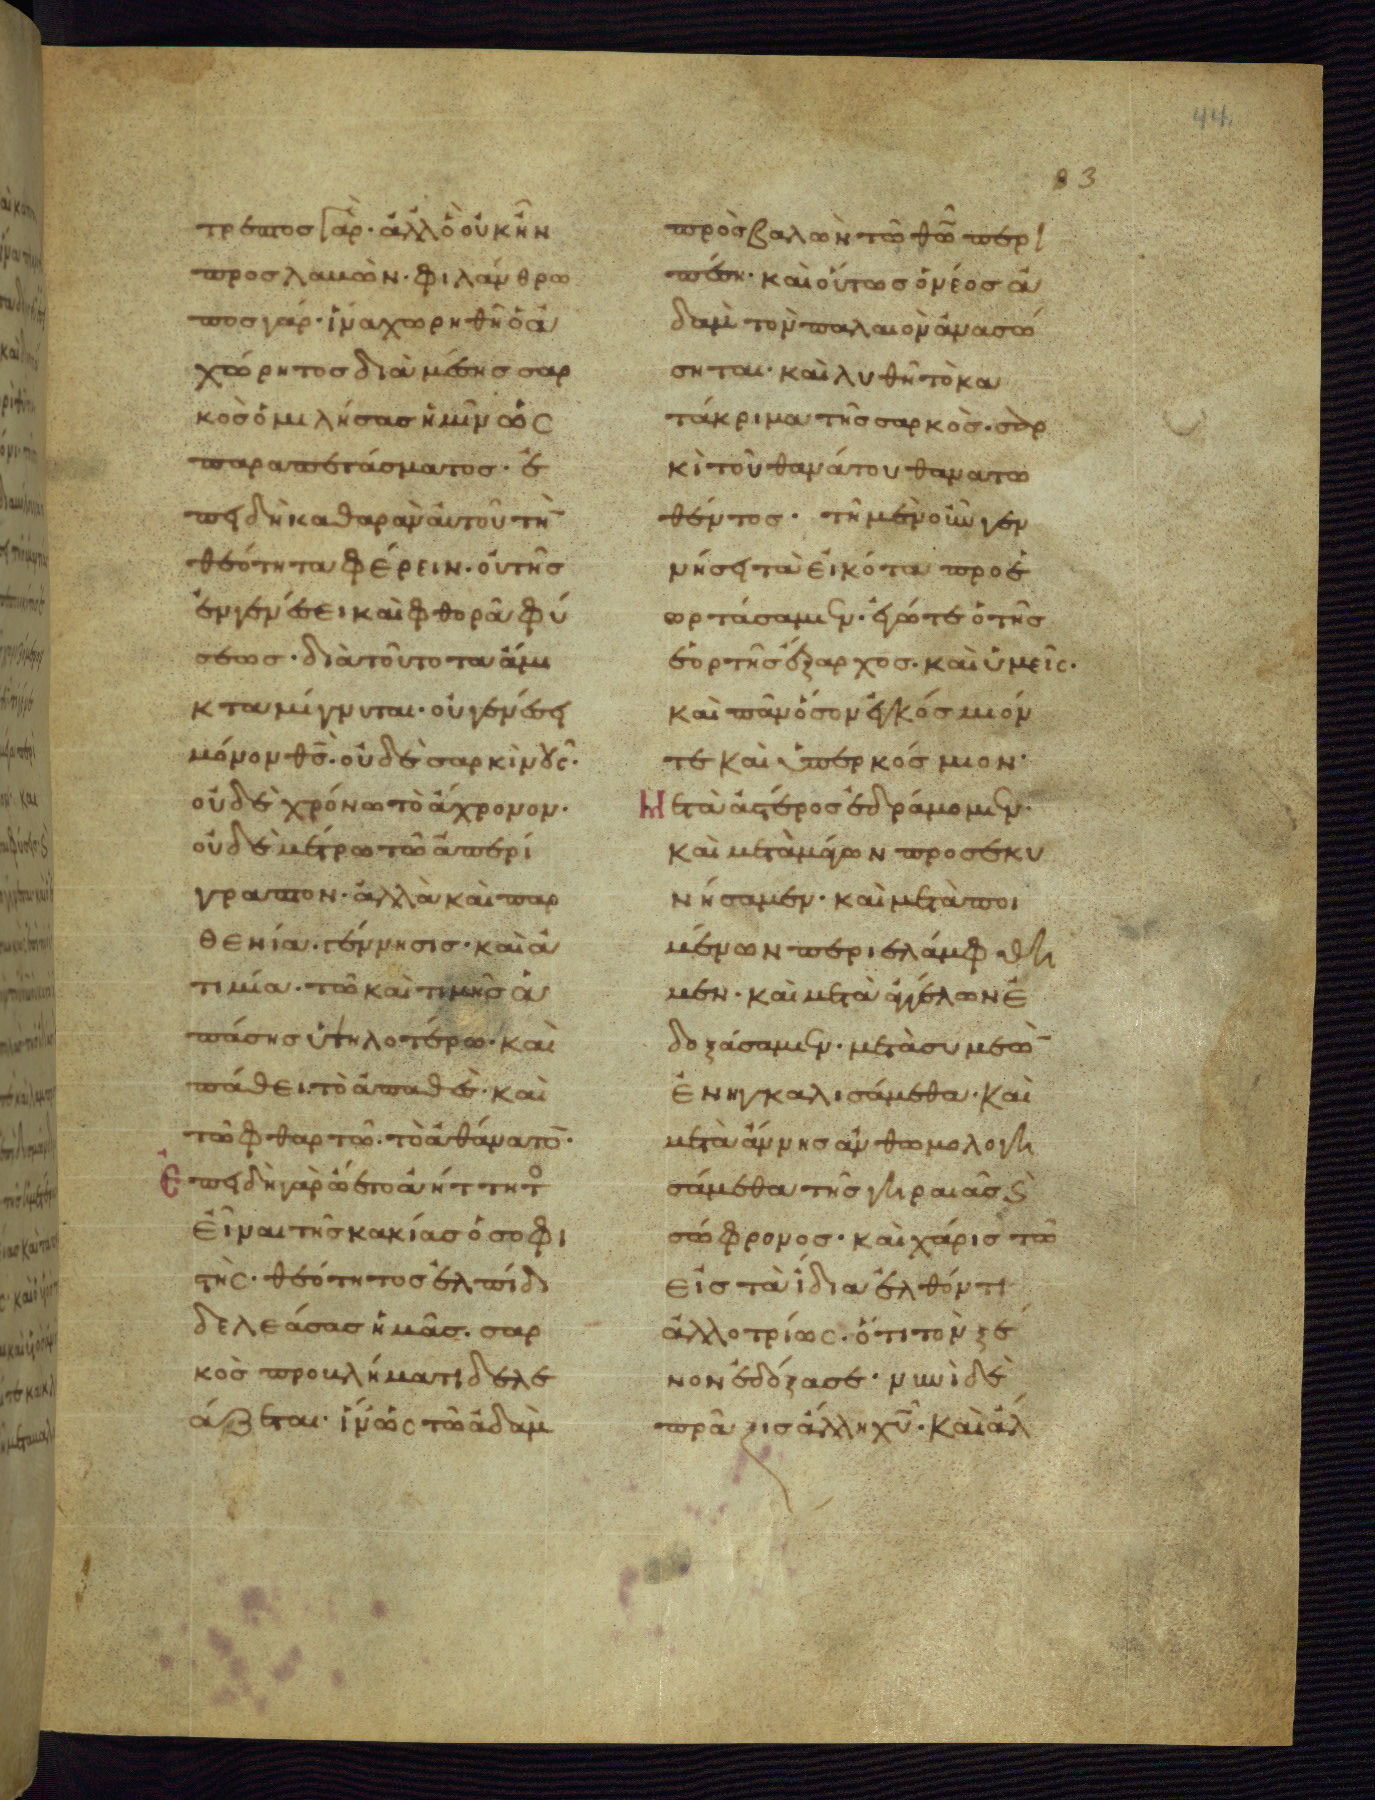 44
83
τρέπτος γὰρ· ἀλλ' ὃ οὐκ ἦν
προσλαμὼν· φιλάνθρω
πος γάρ· ἵνα χωρηθῇ ὁ ἀ
χώρητος διὰ μέσης σαρ
κὸς ὁμιλήσας ἡμῖν ὡς
παραπετάσματος· ἐ
πειδὴ καθαρὰν αὐτοῦ τὴ̄
θεότητα φέρειν· οὐ τῆς
ἐν γενέσει καὶ φθορᾷ φύ
σεως· διὰ τοῦτο τὰ ἄμι
κτα μίγνυται· οὐ γενέσει
μόνον θς̄· οὐδὲ σαρκὶ νοῦς·
οὐδὲ χρόνω τὸ ἄχρονον·
οὐδὲ μέτρω τῶ ἀπερί
γραπτον· ἀλλὰ καὶ παρ
θενία· γέννησις· καὶ ἀ
τιμία· τῶ καὶ τιμῆς ἁ
πάσης ὑψηλοτέρω· καὶ
πάθει τὸ ἀπαθὲς· καὶ
τῶ φθαρτῶ· τὸ ἀθάνατο̄·
Ἐπειδὴ γὰρ ὤετο ἀήττητο
εἶναι τῆς κακίας ὁ σοφι
τὴς· θεότητος ἐλπίδι
δελεάσας ἡμᾶς· σαρ
κὸς προβλήματι δελε
άζεται· ἵν' ὡς τῶ ἀδὰμ
προσβαλὼν τῶ θῶ̄ περι
πέση· καὶ οὕτως ὁ νέος ἀ
δὰμ τὸν παλαιὸν ἀνασώ
σηται· καὶ λυθῆ τὸ κα
τάκριμα τῆς σαρκὸς· σαρ
κὶ τοῦ θανάτου θανατω
θέντος· τῆ μὲν οὖν γεν
νήσει τὰ εἰκότα προε
ορτάσαμεν· ἐγώ τε ὁ τῆς
ἑορτῆς ἔξαρχος· καὶ ὑμεῖς·
καὶ πᾶν ὅσον ἐγκόσμιόν
τε καὶ ὑπερκόσμιον·
Μετὰ ἀστέρος ἐδράμομεν·
καὶ μετὰ μάγων προσεκυ
νήσαμεν· καὶ μετὰ ποι
μένων περιελάμφθη
μεν· καὶ μετὰ ἀγγέλων ἐ
δοξάσαμεν· μετὰ συμεὼ̄
ἐνηγκαλισάμεθα· καὶ
μετὰ ἄννης ἀνθωμολογη
σάμεθα τῆς γηραιᾶς ϗ
σώφρονος· καὶ χάρις τῶ
εἰς τὰ ἴδια ἐλθόντι
ἀλλοτρίως· ὅτι τὸν ξέ
νον ἐδόξασε· νυνὶ δὲ
πρᾶξις ἄλλη χῡ· καὶ ἄλ